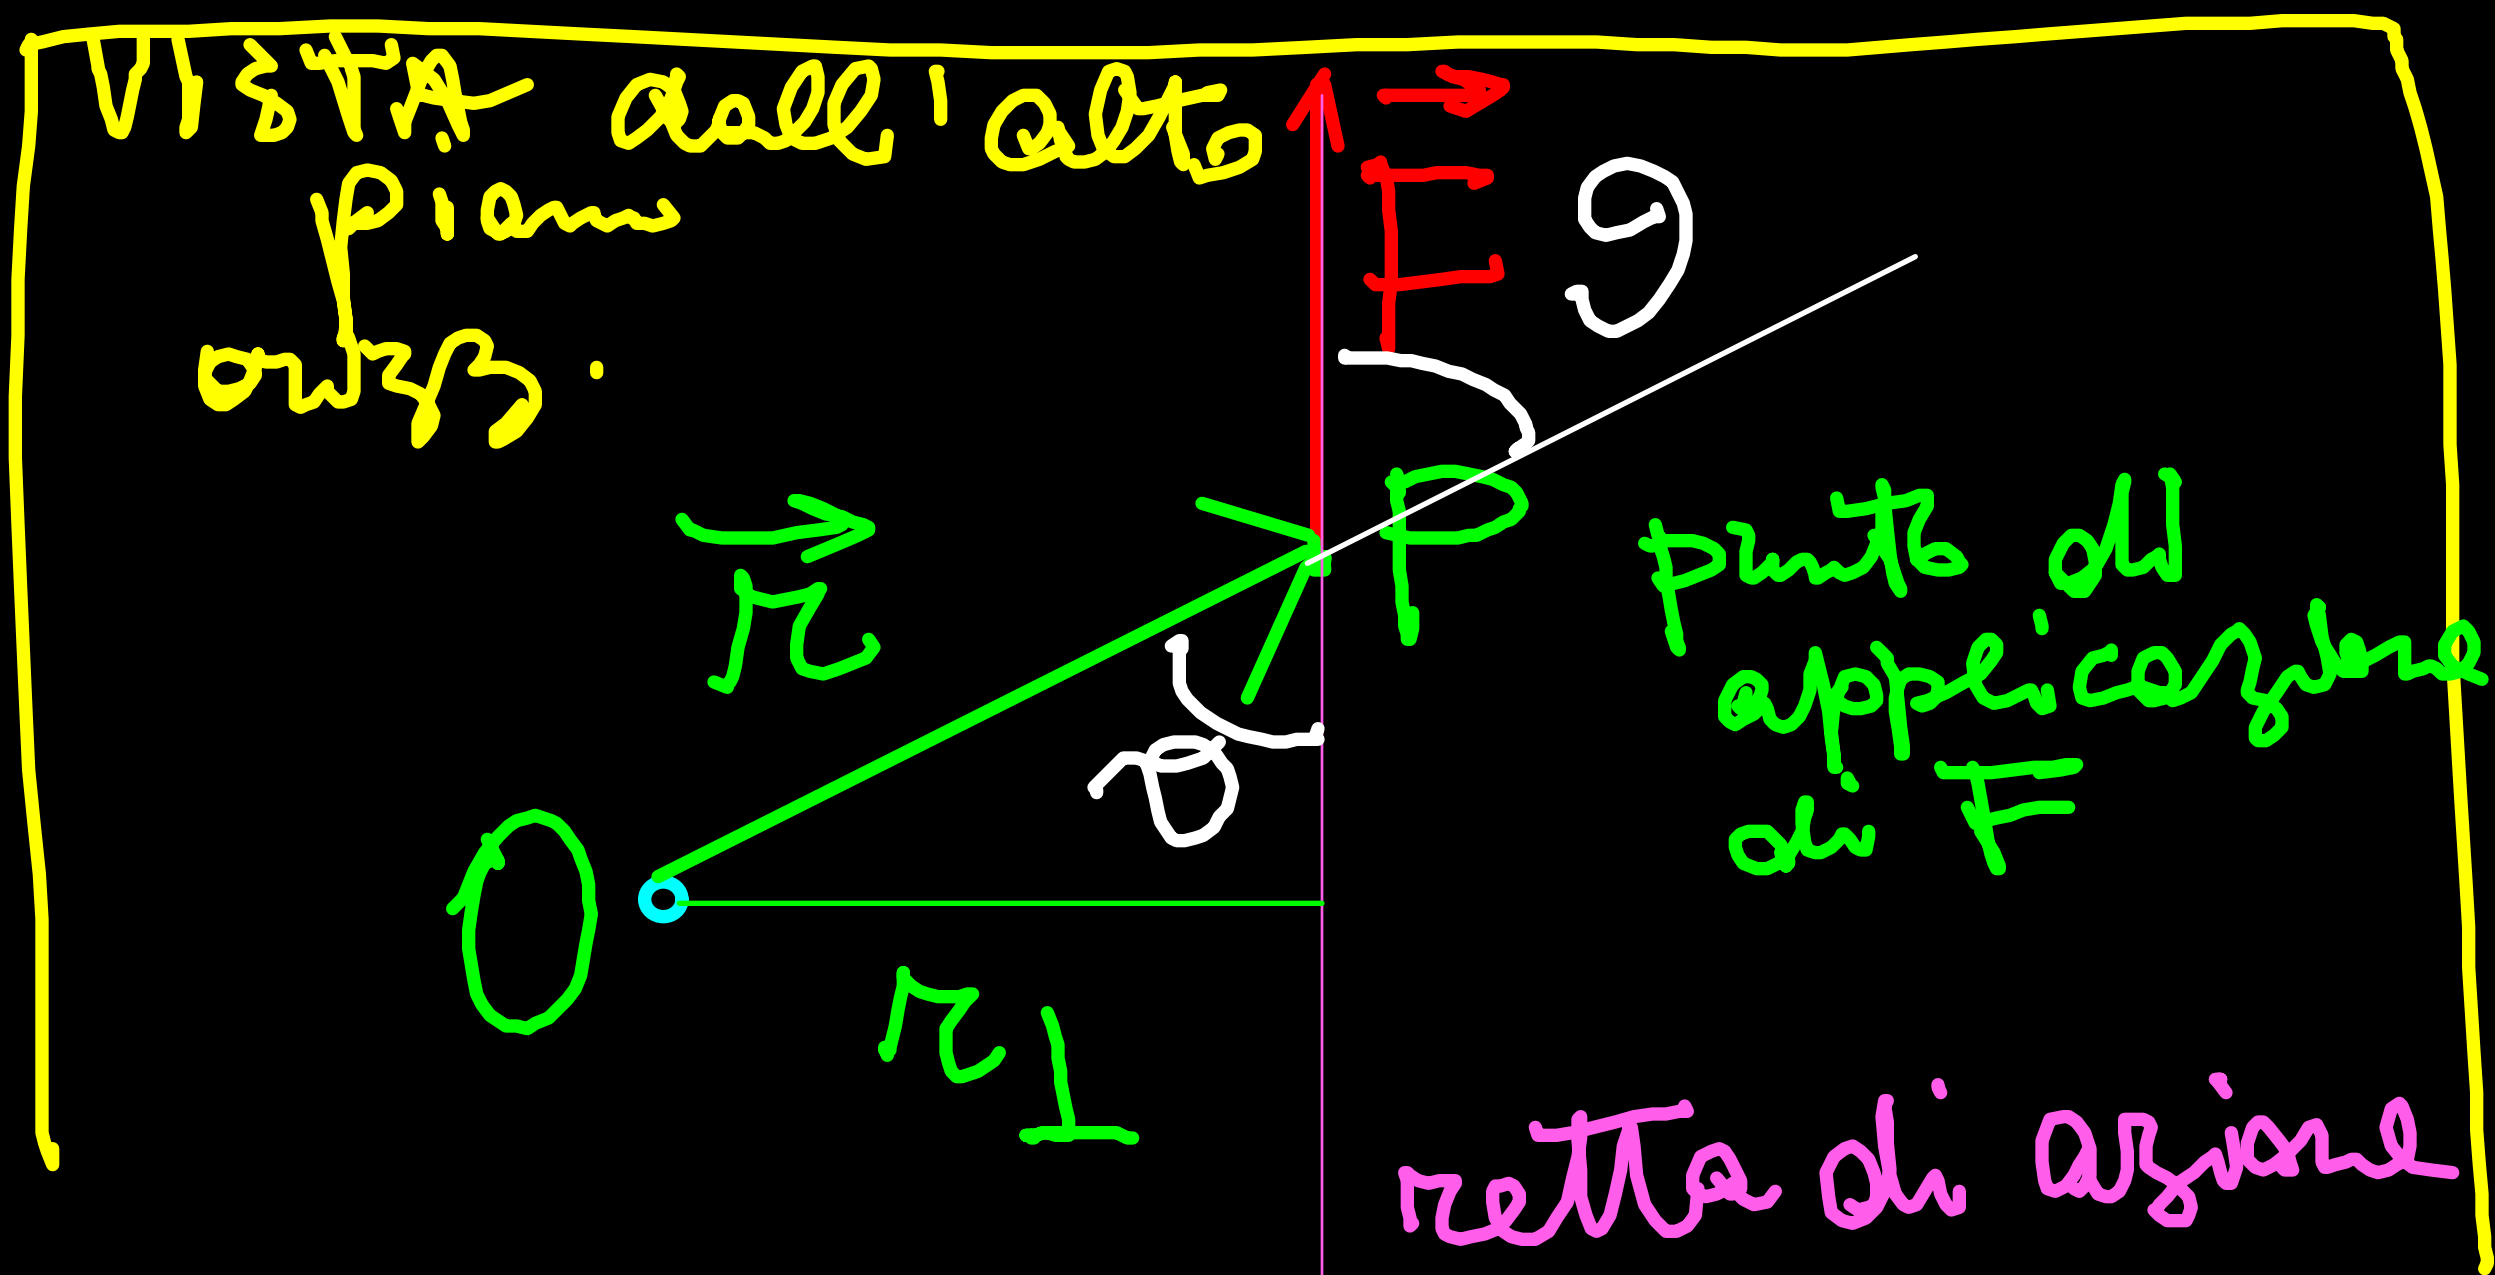 VISTA dall'alto
piano
orizz.
F
θ
P
r
punto di
applicazione
di F
θ
O
r1
retta di azione